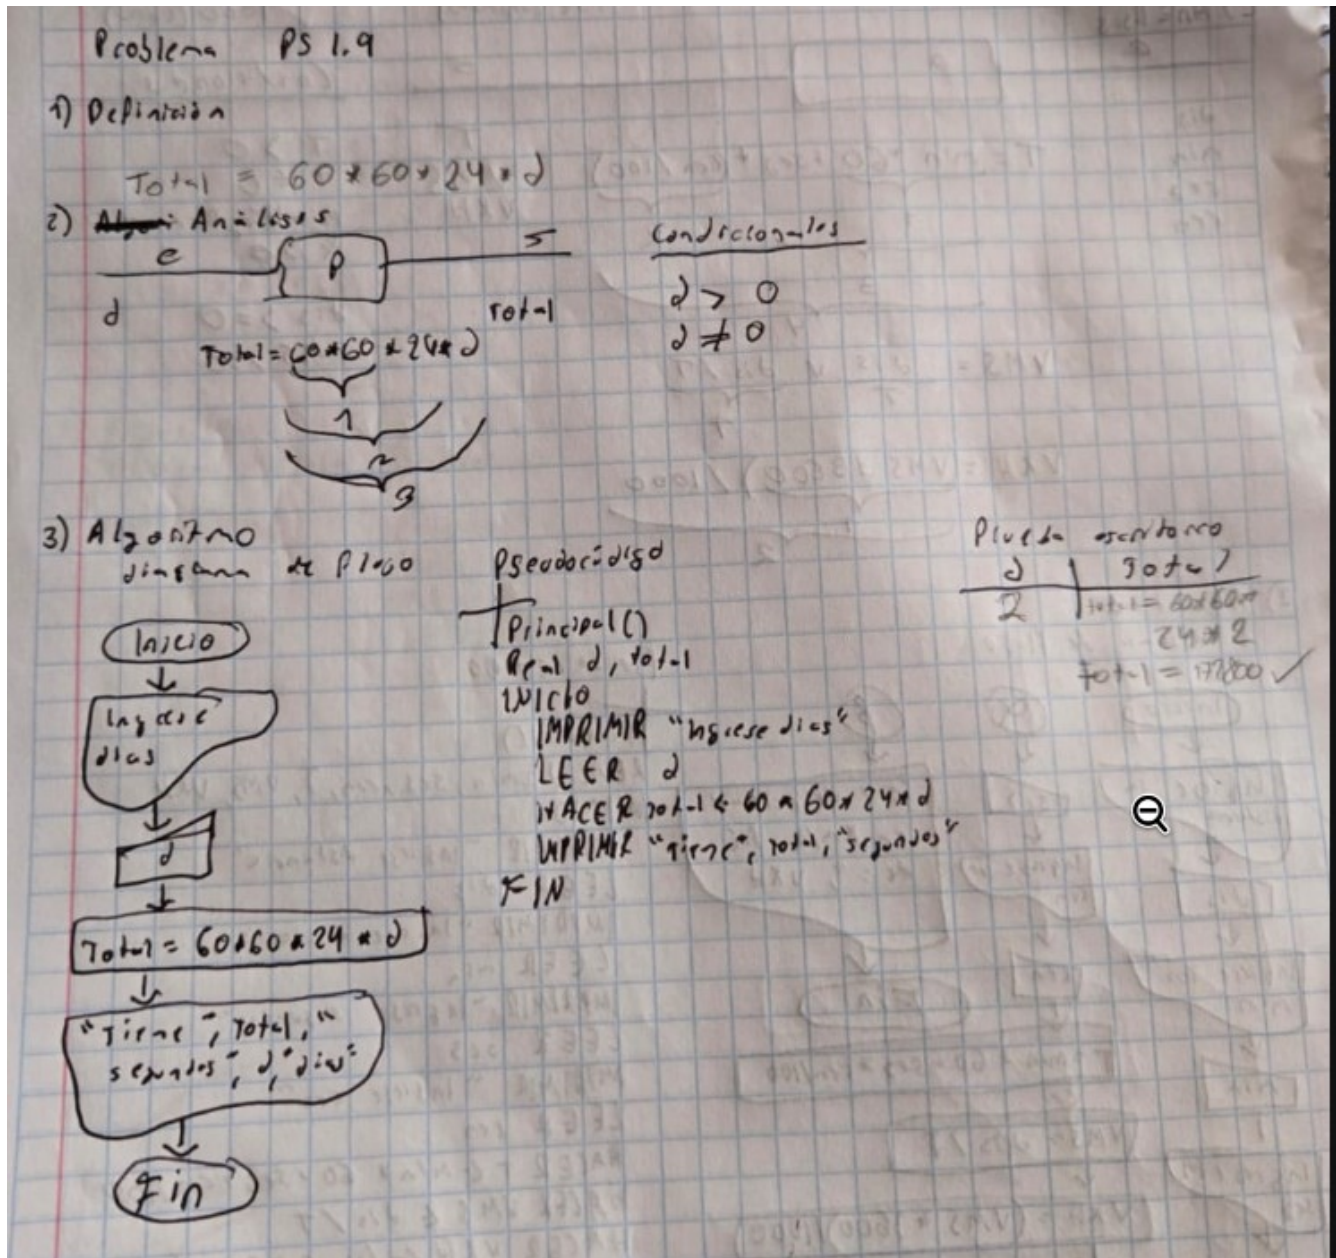 Problema PS 1.9
1) Definición
Total = 60*60*24*d
2) Análisis
e P s
d Total
Total = 60*60*24*d
1
2
3
Condicionales
d > 0
d ≠ 0
3) Algoritmo
diagrama de flujo
Inicio
Ingrese
dias
d
Total = 60*60*24*d
"Tiene", Total, "
segundos", d, "dias"
Fin
Pseudocódigo
Principal()
Real d, total
INICIO
IMPRIMIR "Ingrese dias"
LEER d
HACER total ← 60*60*24*d
IMPRIMIR "Tiene", total, "segundos"
FIN
Prueba escritorio
d Total
2 total = 60*60*
24*2
Total =